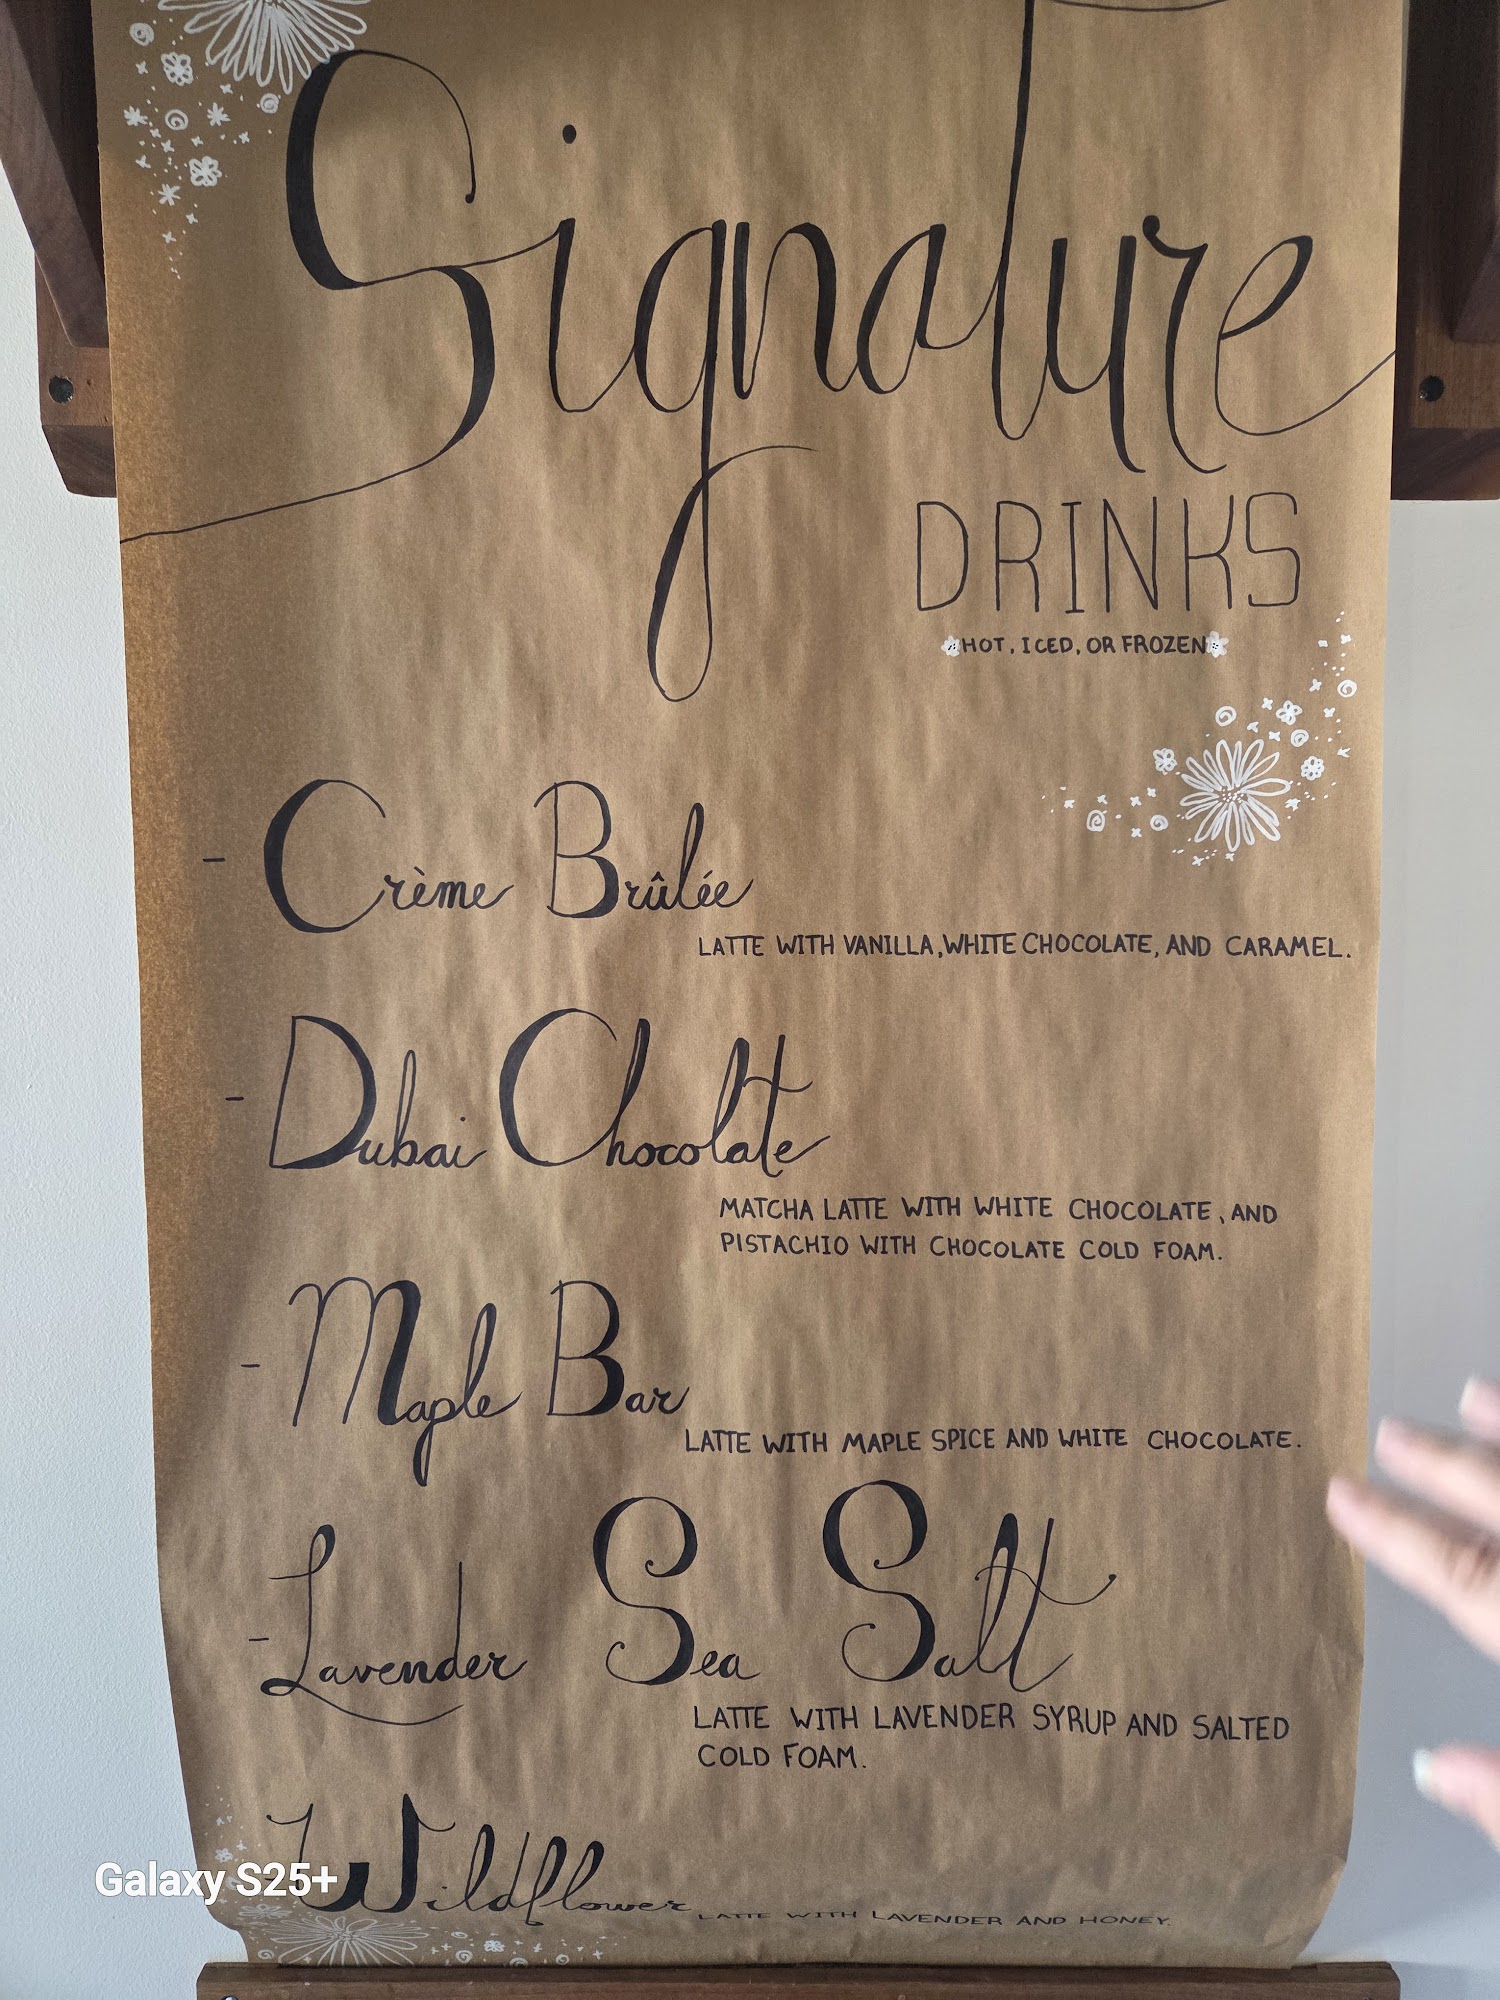 Signature
DRINKS
HOT, ICED, OR FROZEN
- Crème Brûlée
LATTE WITH VANILLA, WHITE CHOCOLATE, AND CARAMEL.
- Dubai Chocolate
MATCHA LATTE WITH WHITE CHOCOLATE, AND
PISTACHIO WITH CHOCOLATE COLD FOAM.
- Maple Bar
LATTE WITH MAPLE SPICE AND WHITE CHOCOLATE.
- Lavender Sea Salt
LATTE WITH LAVENDER SYRUP AND SALTED
COLD FOAM.
Wildflower
LATTE WITH LAVENDER AND HONEY.
Galaxy S25+